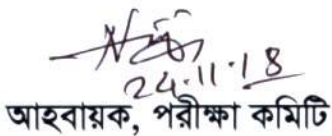 24.11.18
আহবায়ক, পরীক্ষা কমিটি